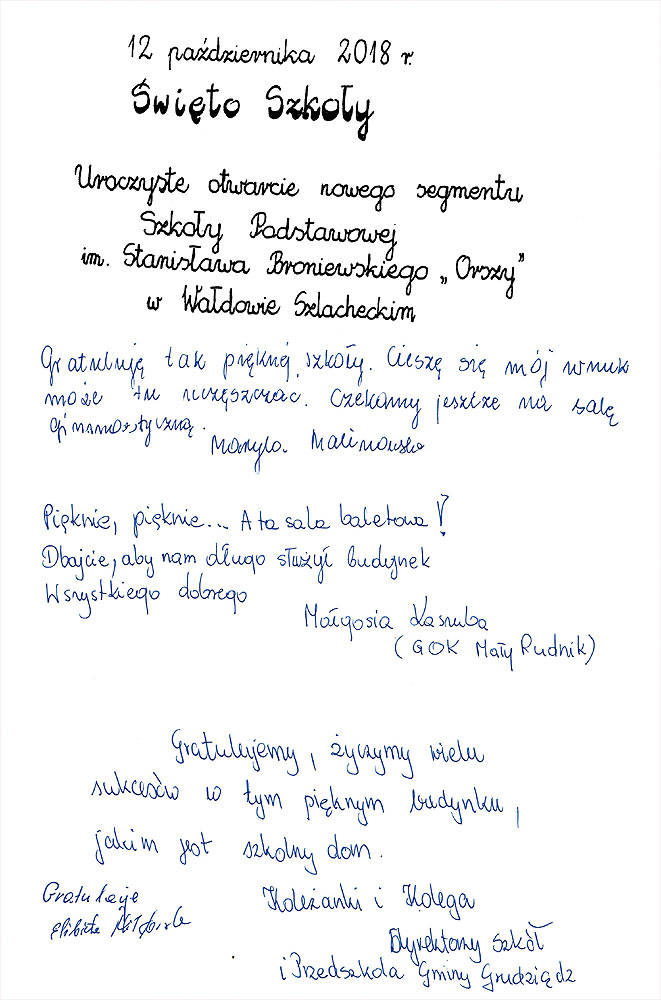 12 października 2018 r.
Święto Szkoły
Uroczyste otwarcie nowego segmentu
Szkoły Podstawowej
im. Stanisława Broniewskiego „Orszy"
w Wałdowie Szlacheckim
Gratuluję tak pięknej szkoły. Cieszę się mój wnuk
może tu uczęszczać. Czekamy jeszcze na salę
gimnastyczną.
Maryla Malinowska
Pięknie, pięknie... A ta sala baletowa!
Dbajcie, aby nam długo służył budynek
Wszystkiego dobrego
Małgosia
(GOK Mały Rudnik)
Gratulujemy, życzymy wielu
sukcesów w tym pięknym budynku,
jakim jest szkolny dom.
Gratuluje
Koleżanki i Kolega
Elżbieta
Dyrektorzy szkół
i Przedszkola Gminy Grudziądz